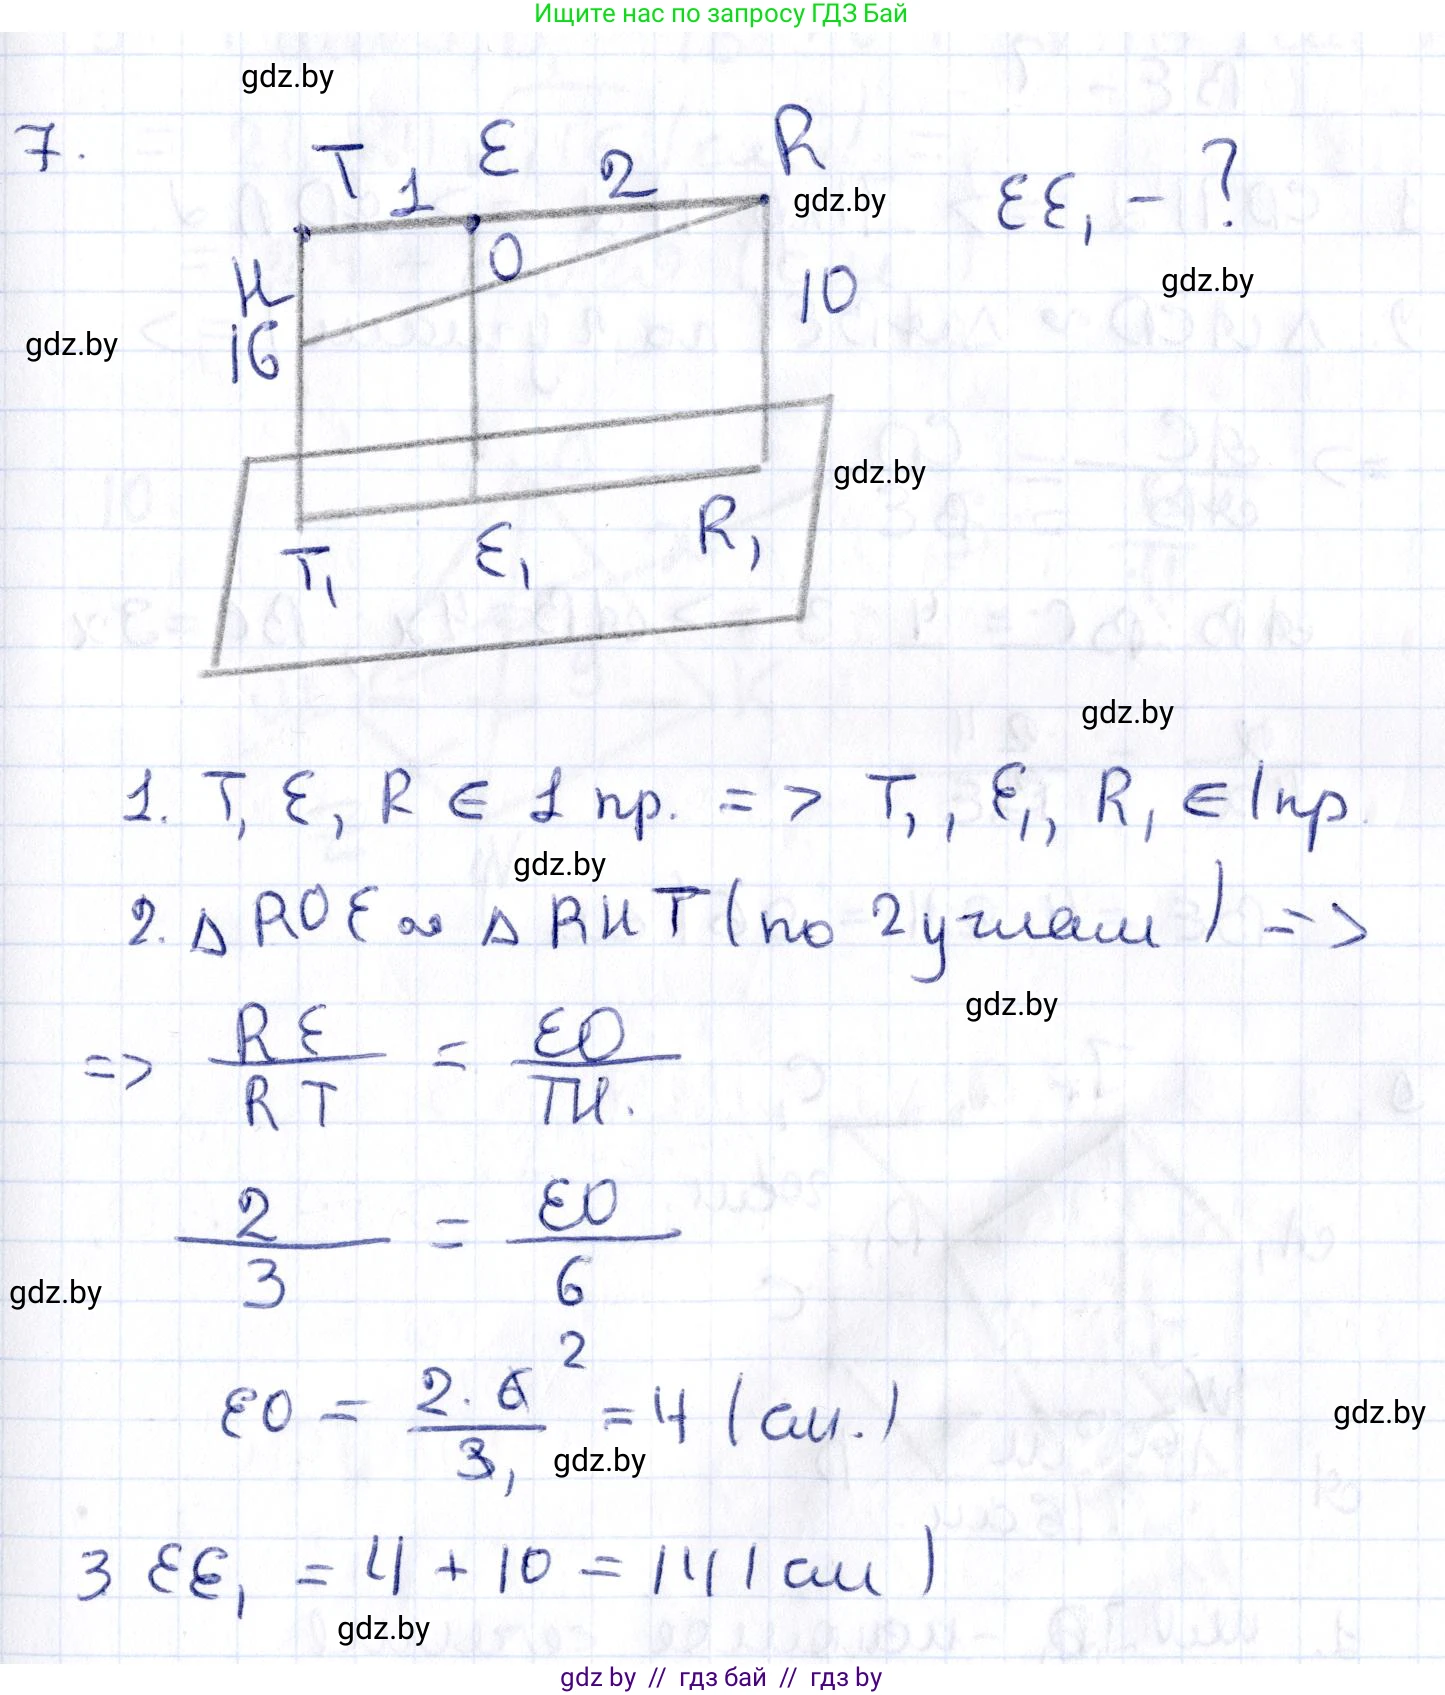 Ищите нас по запросу ГДЗ Бай
gdz.by
7.
T 1 E 2 R
gdz.by
EE₁ - ?
gdz.by
H O 10
gdz.by
16
gdz.by
T₁ E₁ R₁
gdz.by
1. T, E, R ∈ 1 пр. => T₁, E₁, R₁ ∈ 1 пр.
gdz.by
2. Δ ROE ∾ Δ RHT (по 2 углам) =>
gdz.by
=> RE/RT = EO/TH.
2/3 = EO/6
gdz.by
EO = 2·6²/3₁ = 4 (см.)
gdz.by
gdz.by
3 EE₁ = 4 + 10 = 14 (см)
gdz.by
gdz by // гдз бай // гдз by